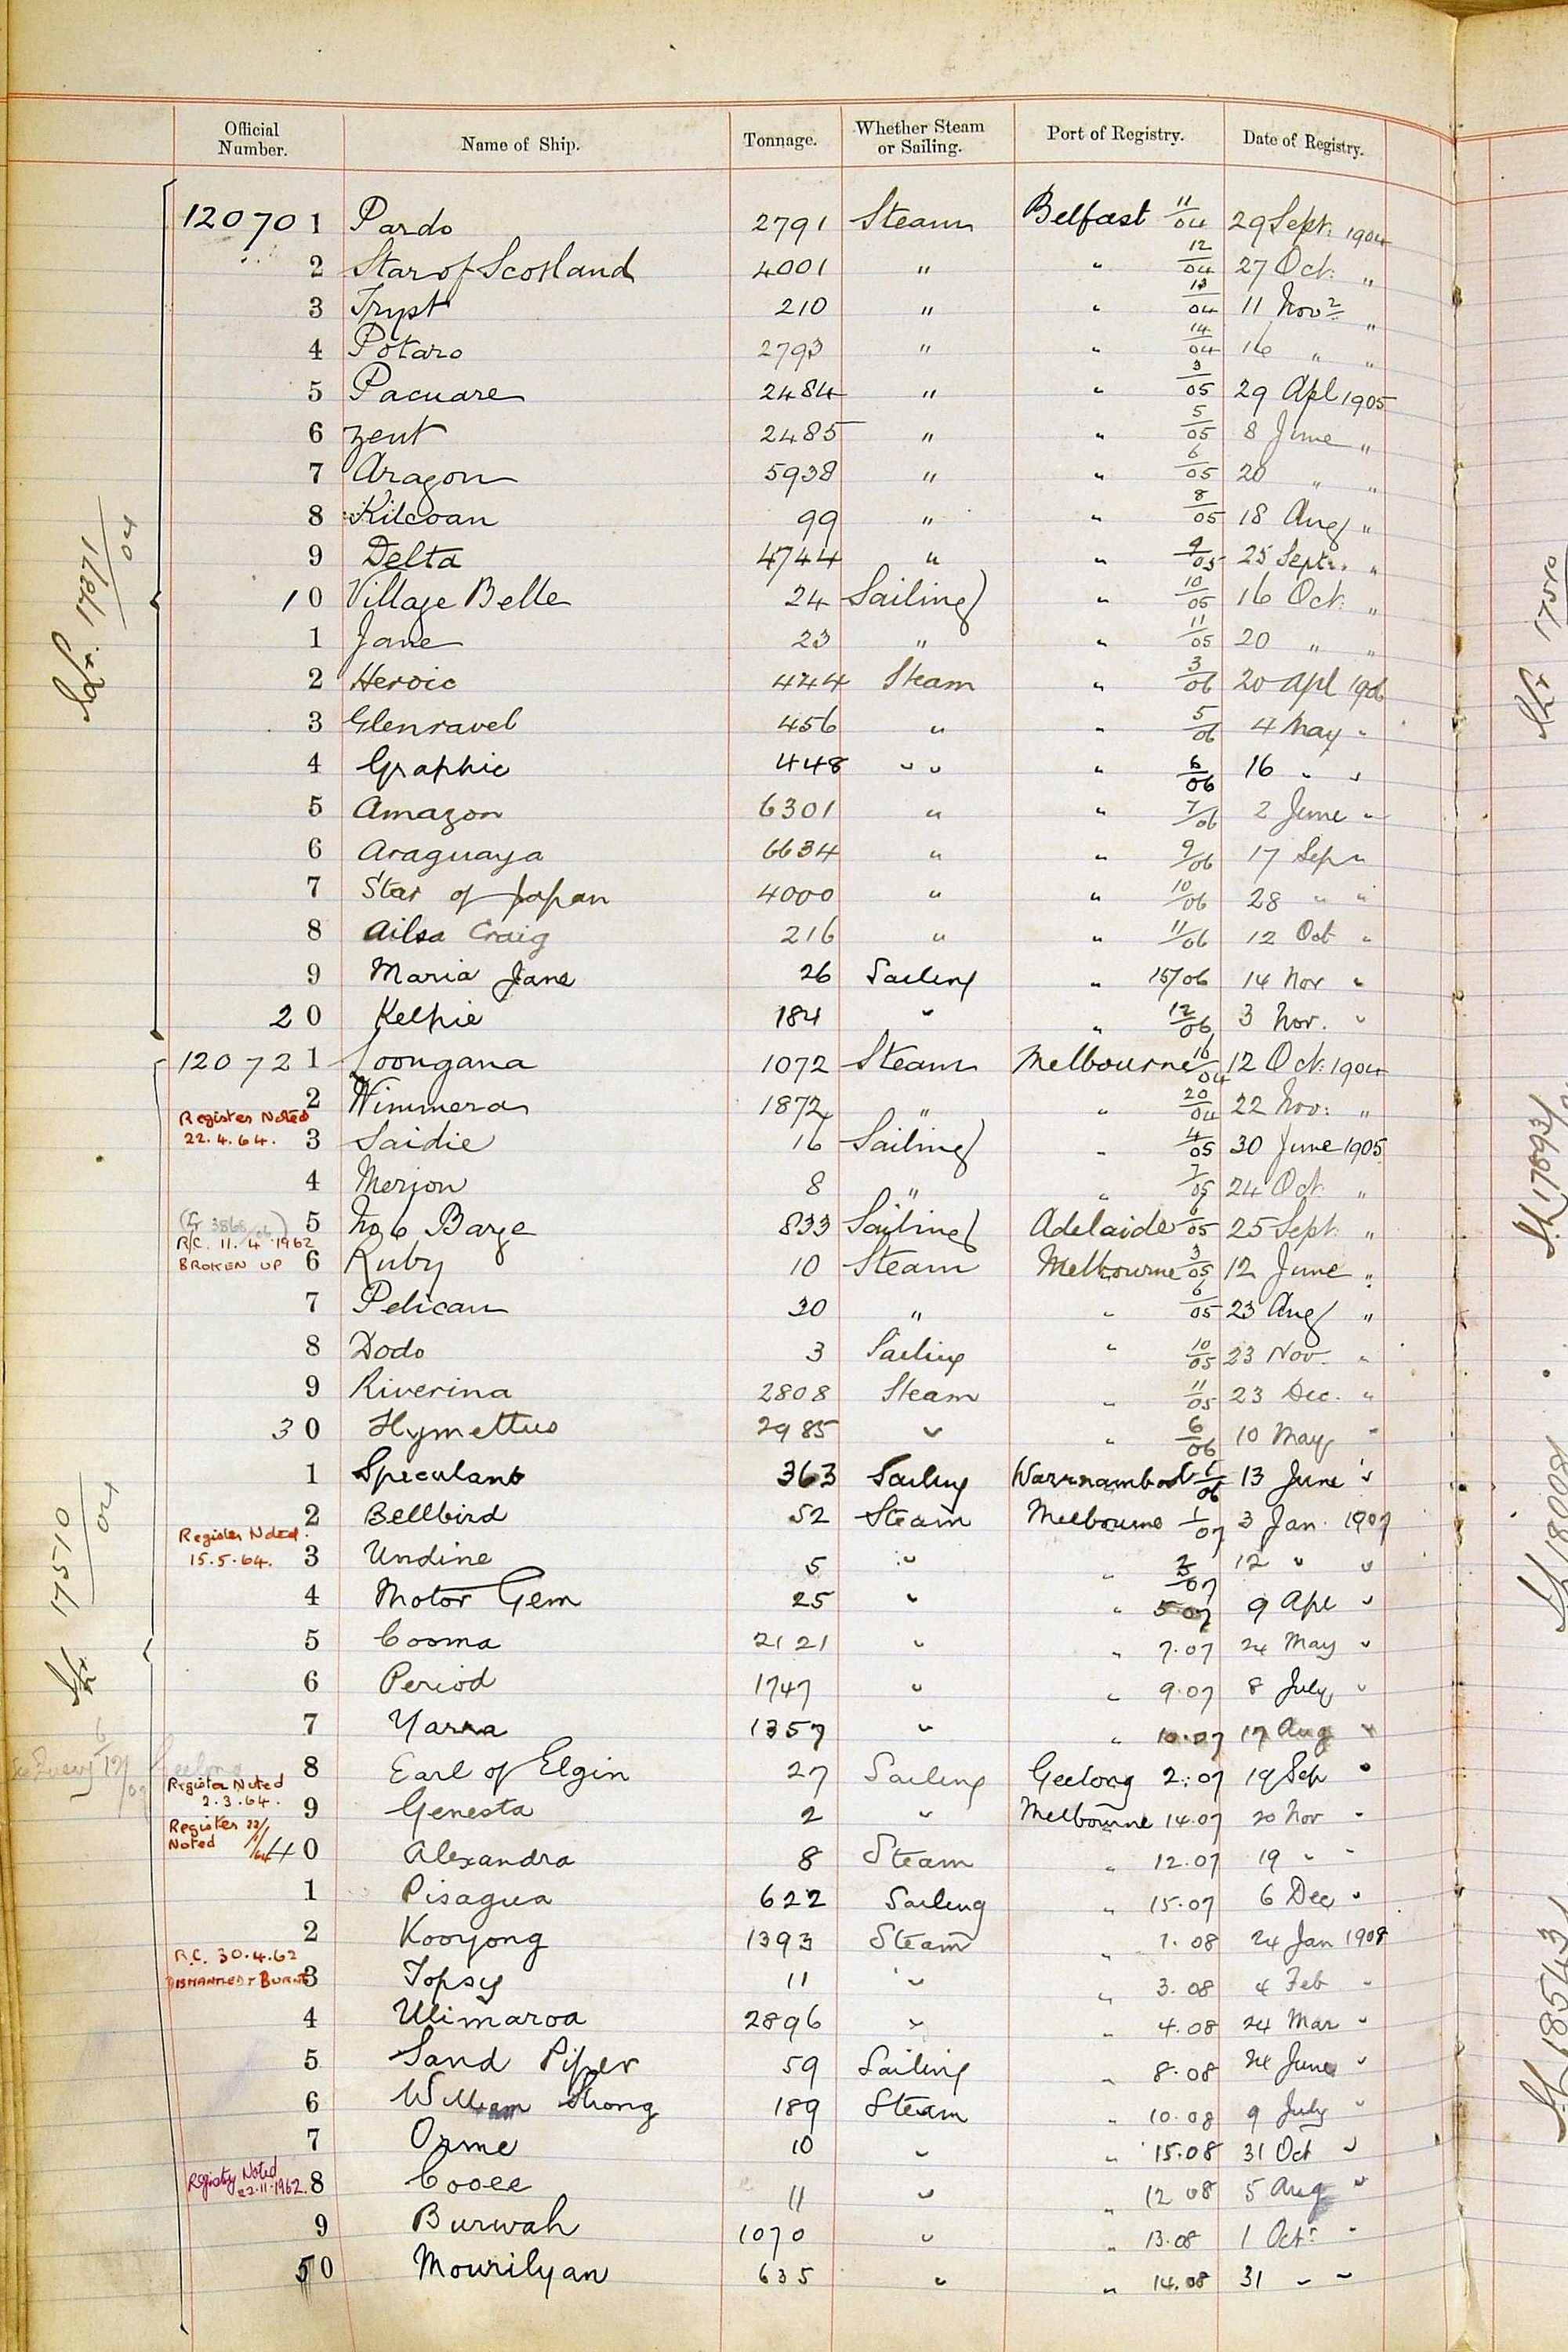 Official Number. Name of Ship. Tonnage. Whether Steam or Sailing. Port of Registry. Date of Registry.
120701 Pardo 2791 Steam Belfast 11/04 29 Sept: 1904
2 Star of Scotland 4001 " " 12/04 27 Oct: "
3 Tryst 210 " " 13/04 11 Nov "
4 Potaro 2793 " " 14/04 16 " "
5 Pacuare 2484 " " 3/05 29 Apl 1905
6 Zent 2485 " " 5/05 8 June "
7 Aragon 5938 " " 6/05 20 " "
8 Kilcoan 99 " " 8/05 18 Aug "
9 Delta 4744 " " 9/05 25 Sept. "
10 Village Belle 24 Sailing " 10/05 16 Oct: "
1 Jane 23 " " 11/05 20 " "
2 Heroic 444 Steam " 3/06 20 Apl 1906
3 Glenravel 456 " " 5/06 4 May "
4 Graphic 448 " " " 6/06 16 " "
5 Amazon 6301 " " 7/06 2 June "
6 Araguaya 6634 " " 9/06 17 Sep "
7 Star of Japan 4000 " " 10/06 28 " "
8 Ailsa Craig 216 " " 11/06 12 Oct "
9 Maria Jane 26 Sailing " 15/06 14 Nov "
20 Kelpie 184 " " 12/06 3 Nov. "
120721 Loongana 1072 Steam Melbourne 16/04 12 Oct: 1904
2 Wimmera 1872 " " 20/04 22 Nov: "
Register Noted
22.4.64. 3 Saidie 16 Sailing " 4/05 30 June 1905
4 Merion 8 " " 7/05 24 Oct "
5 No 6 Barge 833 Sailing Adelaide 6/05 25 Sept: "
R.C. 11.4.1962
BROKEN UP 6 Ruby 10 Steam Melbourne 3/05 12 June "
7 Pelican 30 " " 6/05 23 Aug "
8 Dodo 3 Sailing " 10/05 23 Nov. "
9 Riverina 2808 Steam " 11/05 23 Dec. "
30 Hymettus 2985 " " 6/06 10 May "
1 Speculant 363 Sailing Warrnambool 1/06 13 June "
2 Bellbird 52 Steam Melbourne 1/07 3 Jan 1907
Register Noted.
15.5.64. 3 Undine 5 " " 2/07 12 " "
4 Motor Gem 25 " " 5.07 9 Apl "
5 Cooma 2121 " " 7.07 24 May "
6 Period 1747 " " 9.07 8 July "
7 Yarra 1357 " " 10.07 17 Aug "
8 Earl of Elgin 27 Sailing Geelong 2.07 19 Sep "
Register Noted
2.3.64. 9 Genesta 2 " Melbourne 14.07 20 Nov "
Register
Noted 40 Alexandra 8 Steam " 12.07 19 " "
1 Pisagua 622 Sailing " 15.07 6 Dec "
2 Kooyong 1393 Steam " 1.08 24 Jan 1908
R.C. 30.4.62
DISMANTLED & BURNT 3 Topsy 11 " " 3.08 4 Feb "
4 Ulimaroa 2896 " " 4.08 24 Mar "
5 Sand Piper 59 Sailing " 8.08 24 June "
6 William Strong 189 Steam " 10.08 9 July "
7 Orme 10 " " 15.08 31 Oct "
Registry Noted
22.11.1962. 8 Cooee 11 " " 12 08 5 Aug "
9 Burwah 1070 " " 13.08 1 Oct: "
50 Mourilyan 635 " " 14.08 31 " "
17371/04
17510/04